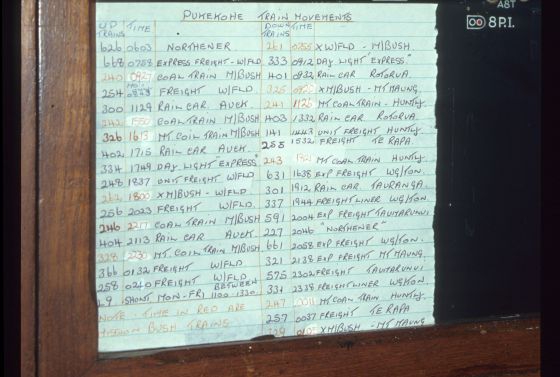 PUKEKOHE TRAIN MOVEMENTS
UP TRAINS TIME
626 0603 NORTHENER
668 0758 EXPRESS FREIGHT - W/FLD
240 0927 COAL TRAIN M/BUSH
254 0848 FREIGHT W/FLD.
300 1129 RAIL CAR AUCK.
242 1550 COAL TRAIN M/BUSH
326 1613 MT. COIL TRAIN M/BUSH
402 1715 RAIL CAR AUCK.
334 1749 DAY LIGHT EXPRESS"
248 1837 UNIT FREIGHT W/FLD
262 1800 XM/BUSH - W/FLD.
256 2023 FREIGHT W/FLD.
246 2217 COAL TRAIN M/BUSH
404 2113 RAIL CAR AUCK.
328 2230 MT. COIL TRAIN M/BUSH
366 0132 FREIGHT W/FLD
258 0240 FREIGHT W/FLD
L9 SHUNT MON-FRI BETWEEN 1100-1330
NOTE - TIME IN RED ARE
MISSION BUSH TRAINS
DOWN TRAINS TIME
261 0755 XW/FLD - M/BUSH.
333 0912 DAY LIGHT "EXPRESS."
401 0932 RAIL CAR ROTORUA.
325 XM/BUSH - MT MAUNG.
241 1126 MT COAL TRAIN - HUNTLY.
403 1332 RAIL CAR ROTORUA
141 1443 UNIT FREIGHT HUNTLY.
255 1532 FREIGHT TE RAPA
243 MT COAL TRAIN HUNTLY.
631 1638 EXP FREIGHT WG/TON.
301 1912 RAIL CAR. TAURANGA.
337 1944 FREIGHT LINER WG/TON
591 2004 EXP FREIGHT TAUMARUNUI
227 2046 "NORTHENER"
661 2058 EXP FREIGHT WG/TON.
321 2138 EXP FREIGHT MT MAUNG.
575 2302 FREIGHT TAUMARUNUI
331 2335 FREIGHT LINER WG/TON.
247 0011 MT COAL TRAIN HUNTLY.
257 0037 FREIGHT TE RAPA
329 XM/BUSH - MT MAUNG
A8T
8 P.I.